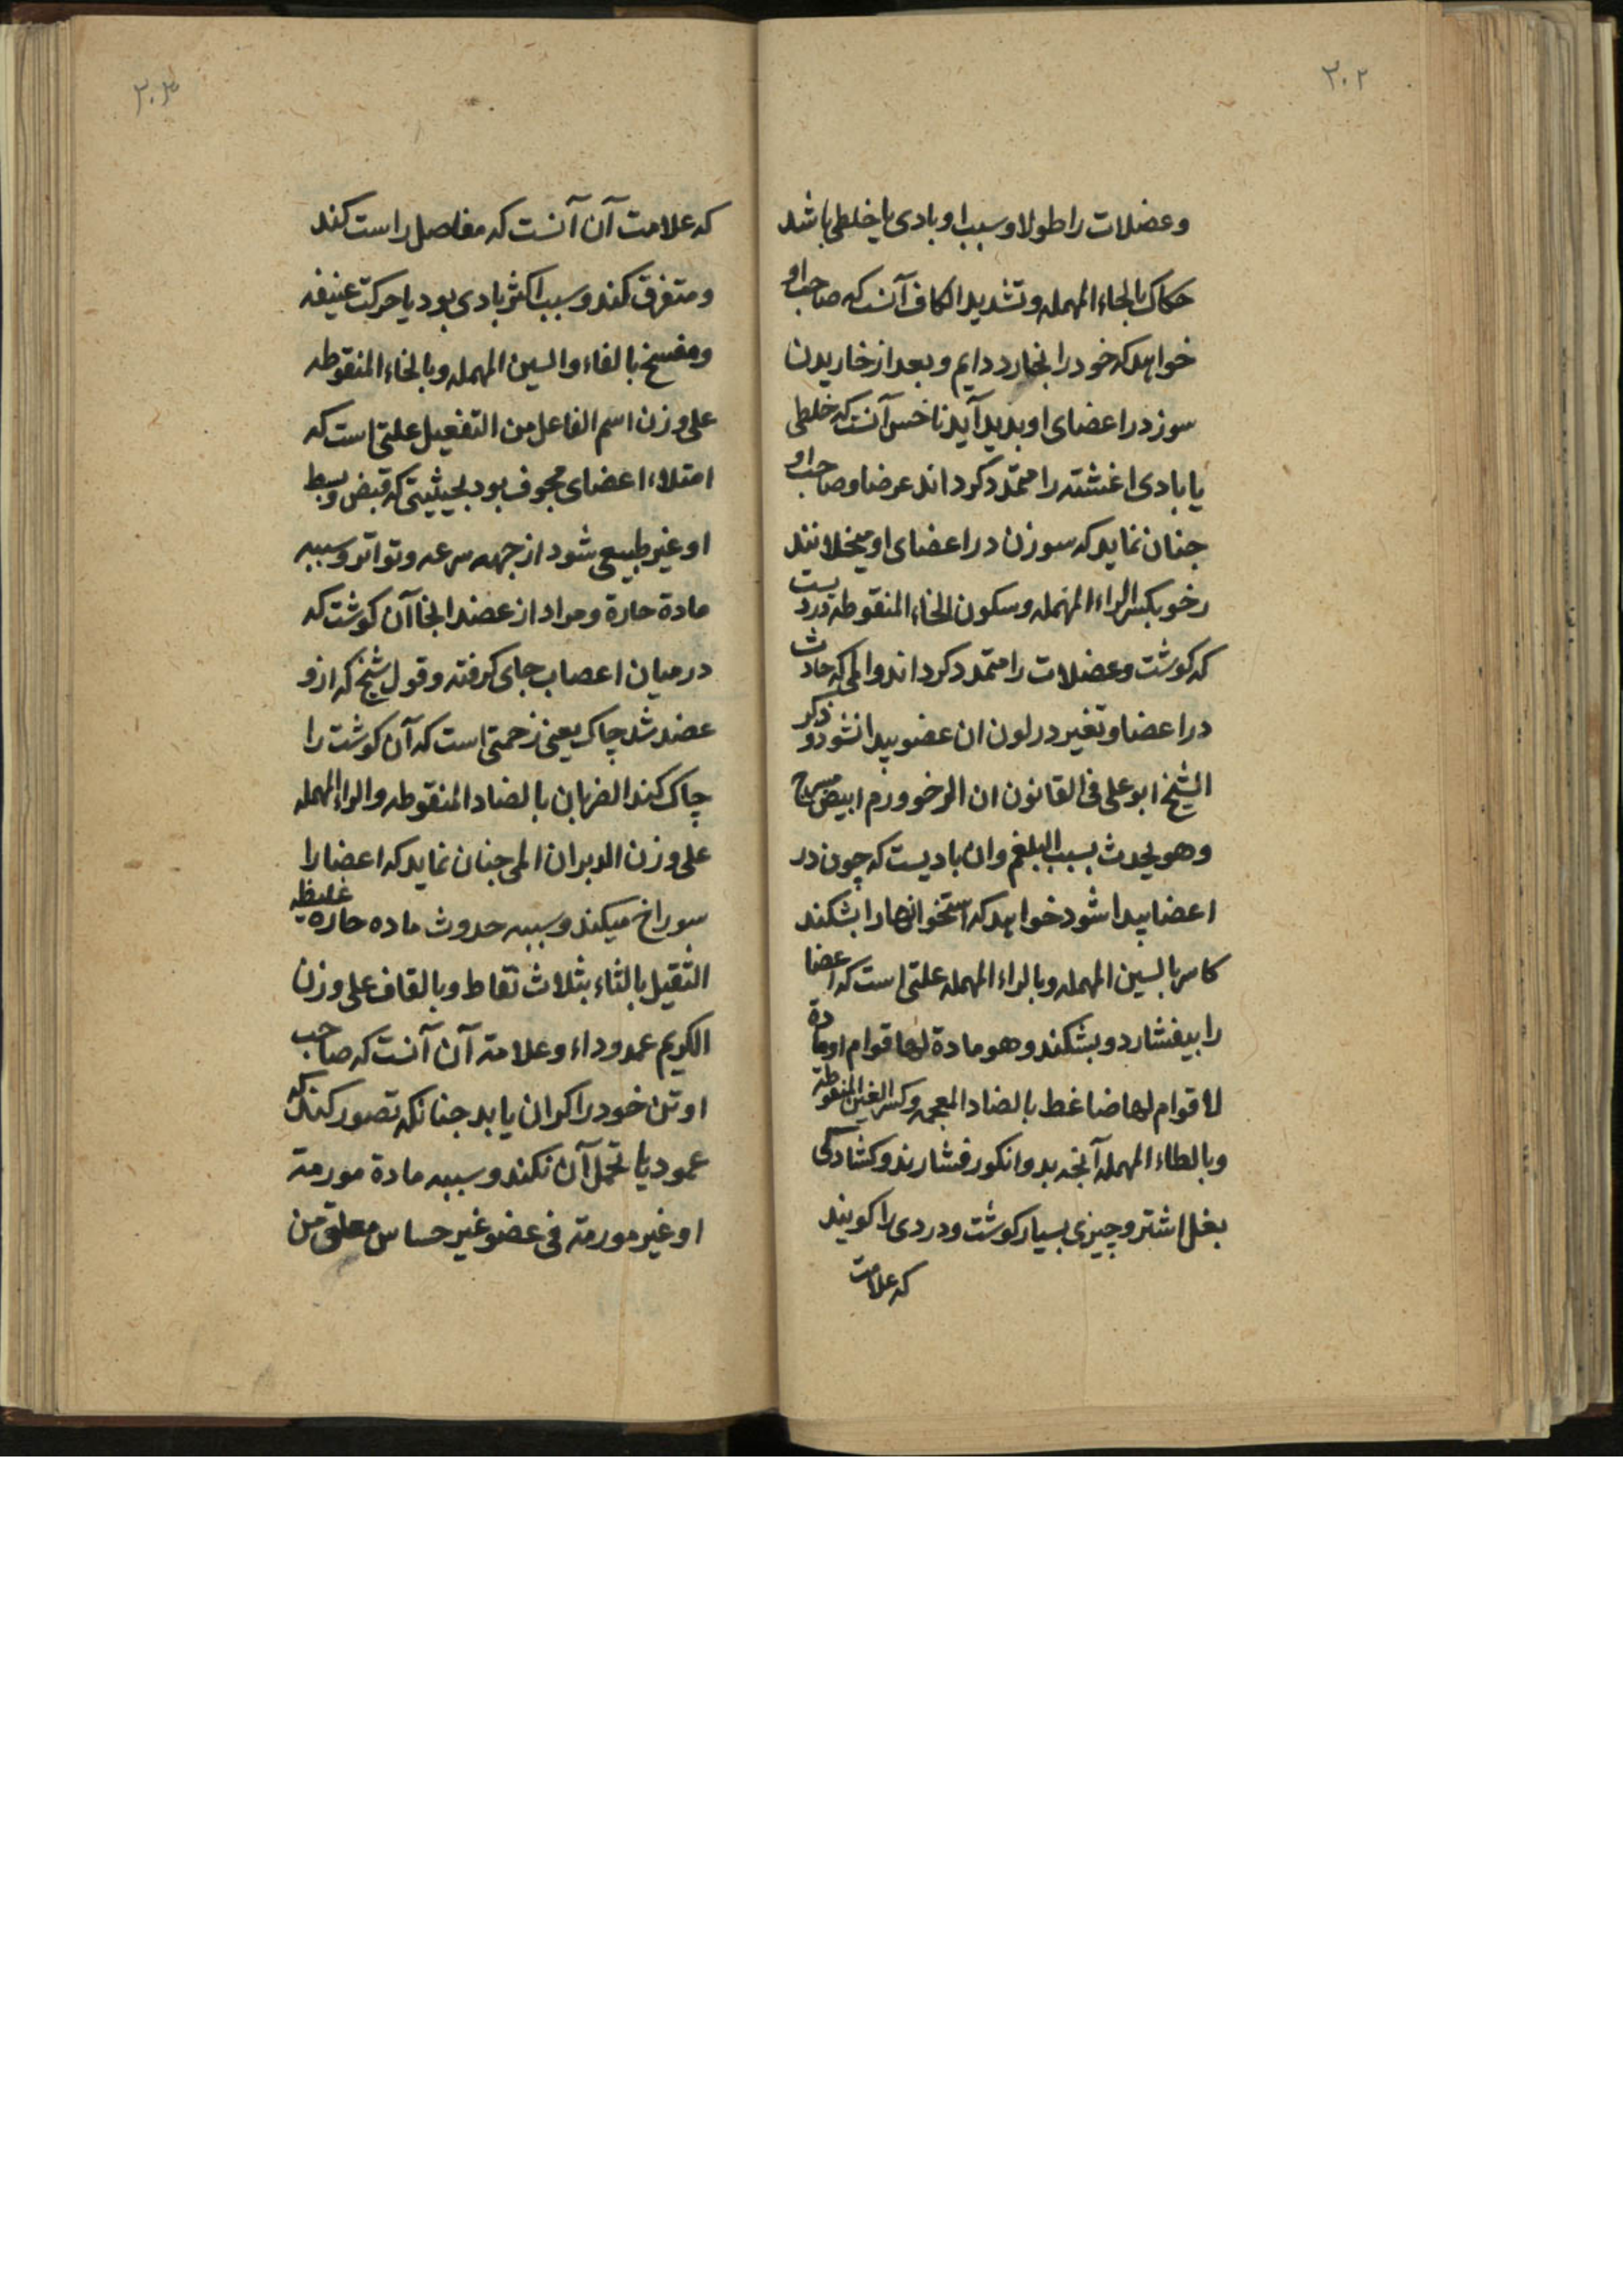 ۳۰۲
وعضلات را طولا و سبب او بادی یا خلطی باشد
حکاک بالحاء المهمله و تشدید الکاف آنست که صاحب او
خواهد که خود را بخارد دایم و بعد از خاریدن
سوز در اعضای او پدید آید ناخس آنست که خلطی
یا بادی اغشته را متمدد کرداند عرضا و صاحب او
جنان نماید که سوزن در اعضای او میخلانند
رخو بکسر الراء المهمله و سکون الخاء المنقوطه دردیست
که کوشت و عضلات را متمدد کرداند و المی که حادث
در اعضا و تغیر در لون ان عضو پیدا نشود و ذکر
الشیخ ابو علی فی القانون ان الرخو ورم ابیض
وهو یحدث بسبب البلغم وان بادیست که چون در
اعضا پیدا شود خواهد که استخوانها را بشکند
کاسر بالسین المهمله و بالراء المهمله علتی است که اعضا
را بیفشارد و بشکند وهو مادة لها قوام او مادة
لا قوام لها ضاغط بالضاد المعجمه و کسر الغین المنقوطة
و بالطاء المهمله آنجه بدو انکور فشارند و کشادگی
بغل اشتر و چیزی بسیار کوشت و دردی را کویند
که علامت
۳۰۳
که علامت آن آنست که مفاصل راست کند
و متفرق کند و سبب اکثر بادی بود یا حرکت عنیفه
و مفسخ بالفاء والسین المهمله و بالخاء المنقوطه
علی وزن اسم الفاعل من التفعیل علتی است که
امتلاء اعضای مجوف بود بحیثیتی که قبض و بسط
او غیر طبیعی شود از جهه سرعه و تواتر و سببه
مادة حارة و مراد از عضد اینجا آن کوشت که
در میان اعصاب جای گرفته و قول شیخ که ازو
عضد شد چاک یعنی زحمتی است که آن کوشت را
چاک کند الضربان بالضاد المنقوطه والراء المهمله
علی وزن الدبران المی جنان نماید که اعضا را
سوراخ میکند و سببه حدوث ماده حاره غلیظه
الثقیل بالثاء بثلاث نقاط و بالقاف علی وزن
الکریم عمود داء و علامة آن آنست که صاحب
او تن خود را کران یابد جنانکه تصور کند که
عمود پا تحمل آن نکند و سببه مادة مورمة
او غیر مورمة فی عضو غیر حساس معلق من